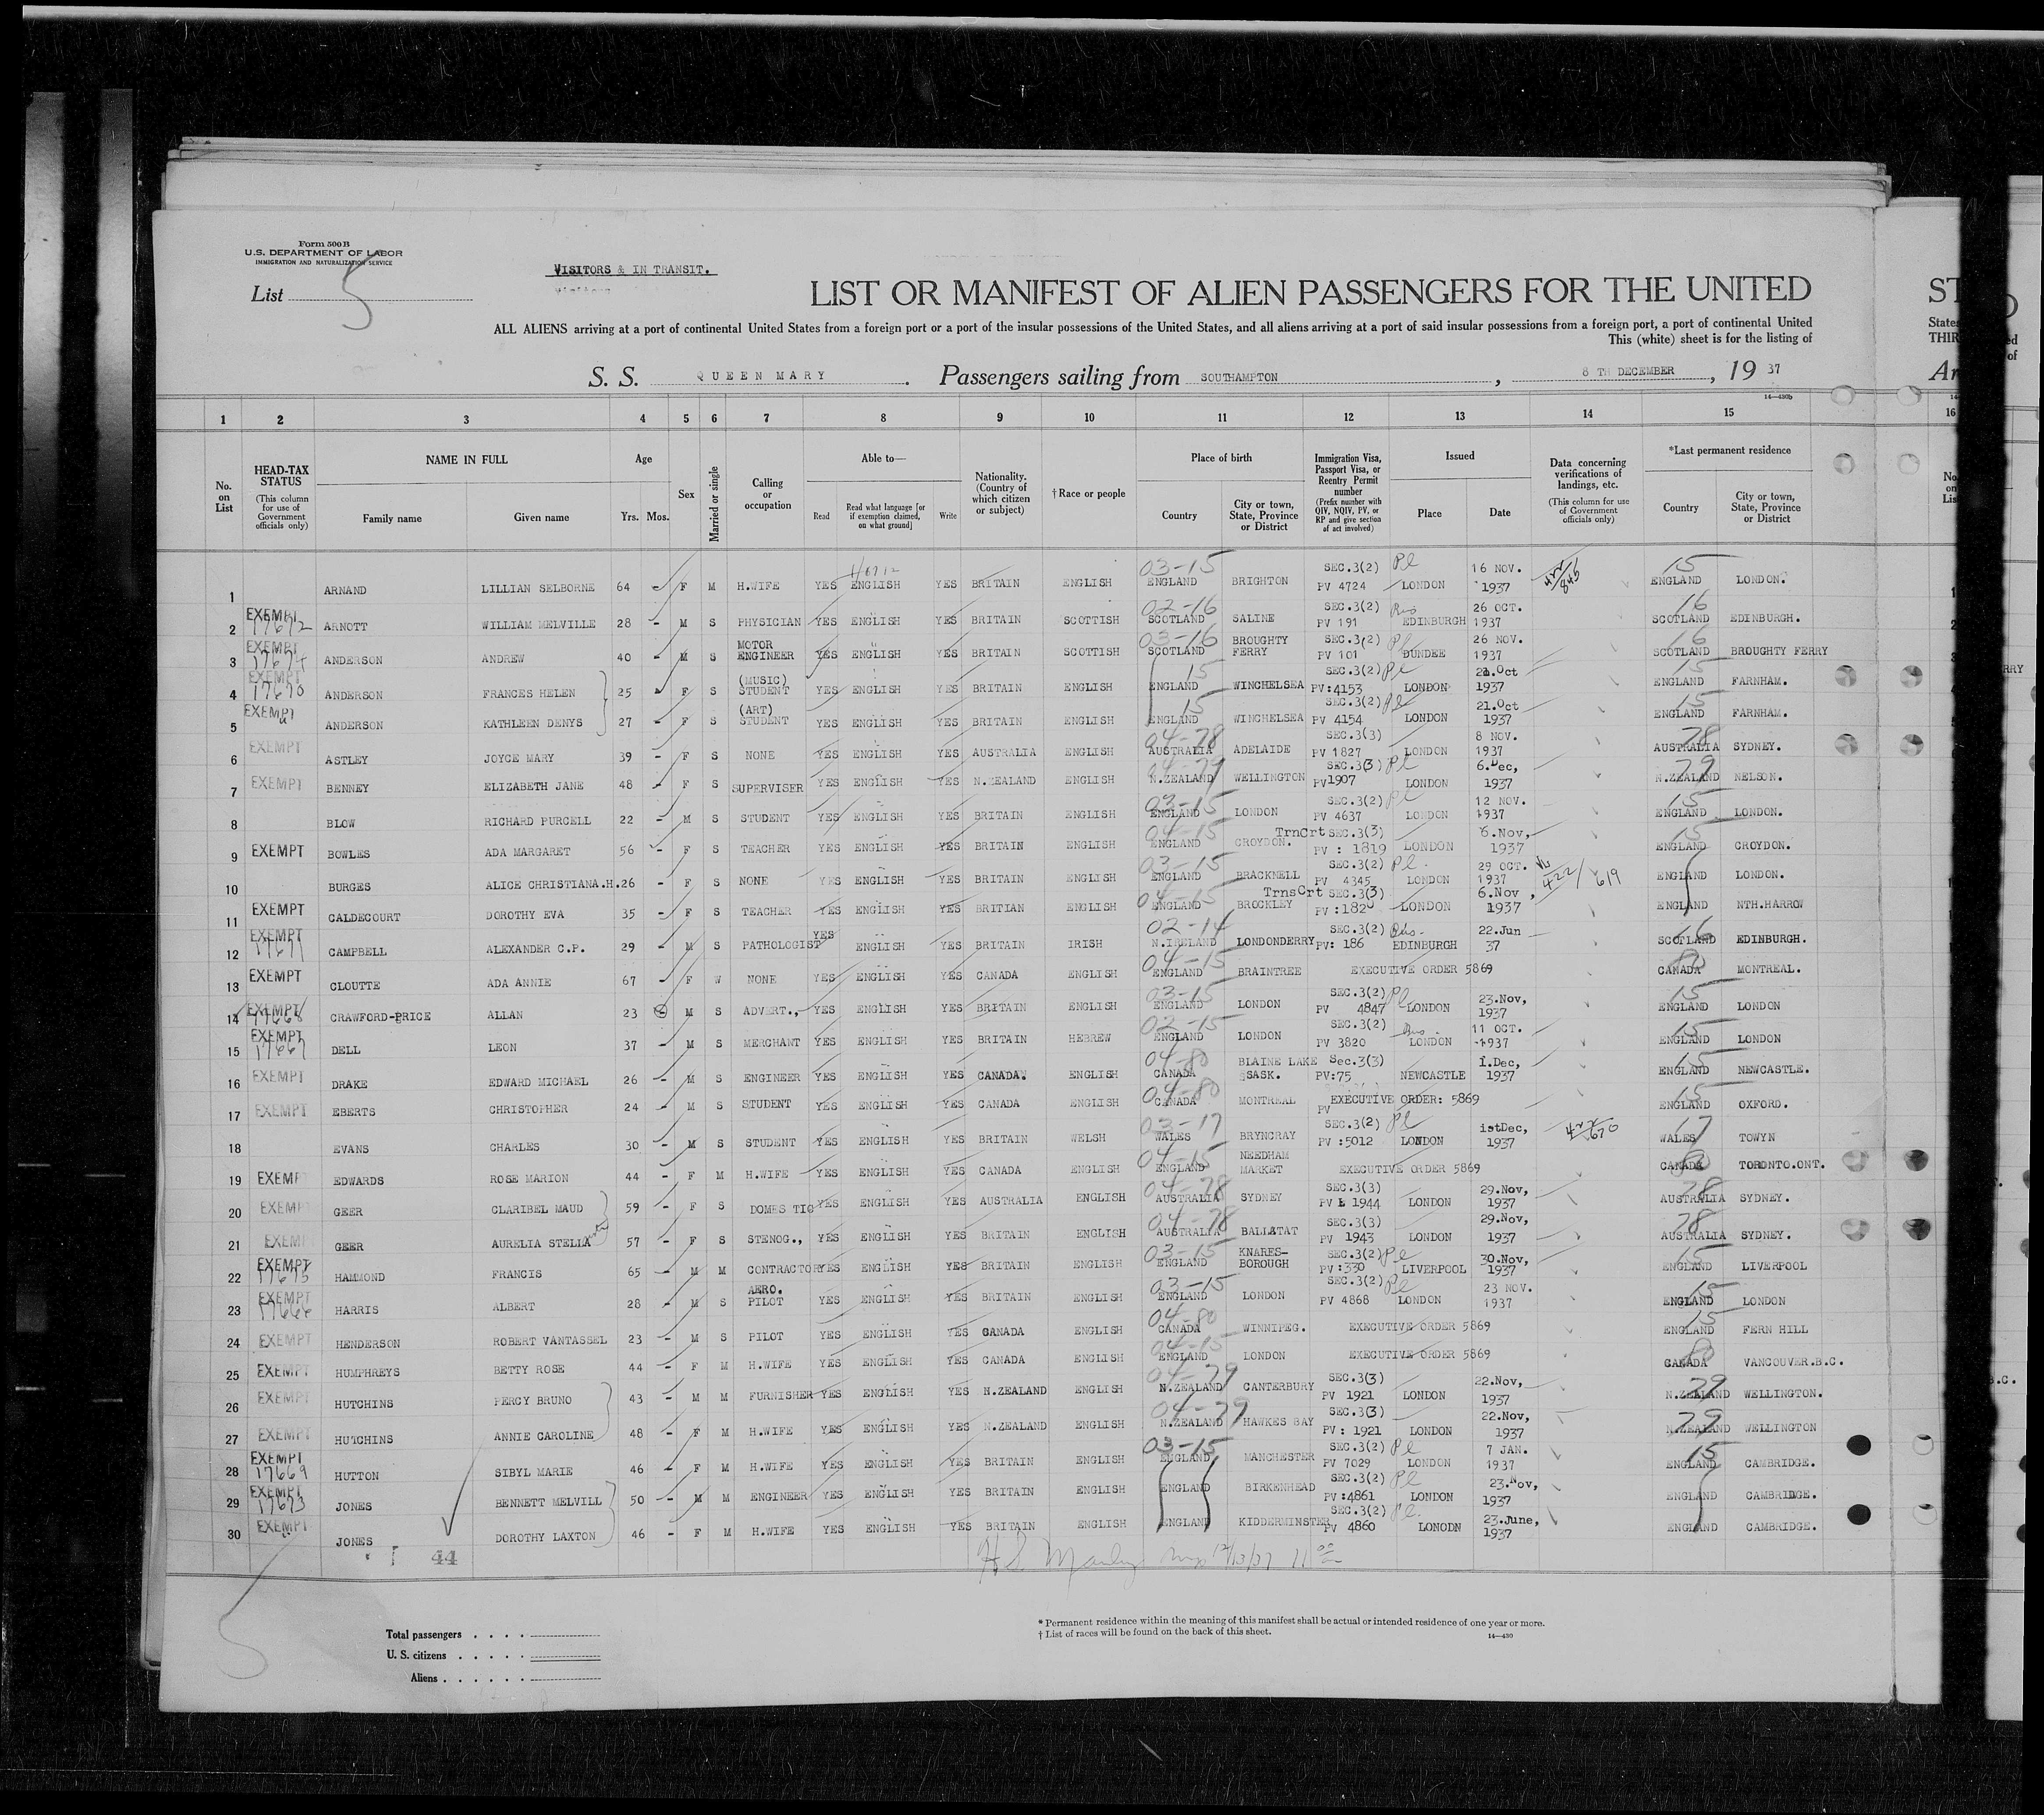 Form 500 B
U.S. DEPARTMENT OF LABOR
IMMIGRATION AND NATURALIZATION SERVICE
VISITORS & IN TRANSIT.
List 5
LIST OR MANIFEST OF ALIEN PASSENGERS FOR THE UNITED
ALL ALIENS arriving at a port of continental United States from a foreign port or a port of the insular possessions of the United States, and all aliens arriving at a port of said insular possessions from a foreign port, a port of continental United
This (white) sheet is for the listing of
S. S. QUEEN MARY . Passengers sailing from SOUTHAMPTON , 8 TH DECEMBER , 19 37
14—430b
1 2 3 4 5 6 7 8 9 10 11 12 13 14 15
No. on List
HEAD-TAX STATUS (This column for use of Government officials only)
NAME IN FULL Family name Given name
Age Yrs. Mos.
Sex
Married or single
Calling or occupation
Able to— Read Read what language [or if exemption claimed, on what ground] Write
Nationality. (Country of which citizen or subject)
† Race or people
Place of birth Country City or town, State, Province or District
Immigration Visa, Passport Visa, or Reentry Permit number (Prefix number with QIV, NQIV, PV, or RP and give section of act involved)
Issued Place Date
Data concerning verifications of landings, etc. (This column for use of Government officials only)
*Last permanent residence Country City or town, State, Province or District
1 ARNAND LILLIAN SELBORNE 64 - F M H.WIFE YES ENGLISH YES BRITAIN ENGLISH 03-15 ENGLAND BRIGHTON SEC.3(2) PV 4724 Pl LONDON 16 NOV. 1937 422/845 15 ENGLAND LONDON.
2 EXEMPT 17672 ARNOTT WILLIAM MELVILLE 28 - M S PHYSICIAN YES ENGLISH YES BRITAIN SCOTTISH 02-16 SCOTLAND SALINE SEC.3(2) PV 191 EDINBURGH 26 OCT. 1937 16 SCOTLAND EDINBURGH.
3 EXEMPT 17674 ANDERSON ANDREW 40 - M S MOTOR ENGINEER YES ENGLISH YES BRITAIN SCOTTISH 03-16 SCOTLAND BROUGHTY FERRY SEC.3(2) PV 101 Pl DUNDEE 26 NOV. 1937 16 SCOTLAND BROUGHTY FERRY
4 EXEMPT 17670 ANDERSON FRANCES HELEN 25 - F S (MUSIC) STUDENT YES ENGLISH YES BRITAIN ENGLISH 15 ENGLAND WINCHELSEA SEC.3(2) PV:4153 Pl LONDON 21.Oct 1937 15 ENGLAND FARNHAM.
5 EXEMPT ANDERSON KATHLEEN DENYS 27 - F S (ART) STUDENT YES ENGLISH YES BRITAIN ENGLISH 15 ENGLAND WINCHELSEA SEC.3(2) PV 4154 Pl LONDON 21.Oct 1937 15 ENGLAND FARNHAM.
6 EXEMPT ASTLEY JOYCE MARY 39 - F S NONE YES ENGLISH YES AUSTRALIA ENGLISH 04-78 AUSTRALIA ADELAIDE SEC.3(3) PV 1827 LONDON 8 NOV. 1937 78 AUSTRALIA SYDNEY.
7 EXEMPT BENNEY ELIZABETH JANE 48 - F S SUPERVISER YES ENGLISH YES N.ZEALAND ENGLISH 04-79 N.ZEALAND WELLINGTON SEC.3(3) PV1907 Pl LONDON 6.Dec, 1937 79 N.ZEALAND NELSON.
8 BLOW RICHARD PURCELL 22 - M S STUDENT YES ENGLISH YES BRITAIN ENGLISH 03-15 ENGLAND LONDON SEC.3(2) PV 4637 Pl LONDON 12 NOV. 1937 15 ENGLAND LONDON.
9 EXEMPT BOWLES ADA MARGARET 56 - F S TEACHER YES ENGLISH YES BRITAIN ENGLISH 04-15 ENGLAND CROYDON. TrnCrt SEC.3(3) PV : 1819 LONDON 6.Nov, 1937 15 ENGLAND CROYDON.
10 BURGES ALICE CHRISTIANA.H. 26 - F S NONE YES ENGLISH YES BRITAIN ENGLISH 03-15 ENGLAND BRACKNELL SEC.3(2) PV 4345 Pl LONDON 29 OCT. 1937 422/619 ENGLAND LONDON.
11 EXEMPT CALDECOURT DOROTHY EVA 35 - F S TEACHER YES ENGLISH YES BRITIAN ENGLISH 04-15 ENGLAND BROCKLEY TrnsCrt SEC.3(3) PV :1820 LONDON 6.Nov, 1937 ENGLAND NTH.HARROW
12 EXEMPT 17671 CAMPBELL ALEXANDER C.P. 29 - M S PATHOLOGIST YES ENGLISH YES BRITAIN IRISH 02-14 N.IRELAND LONDONDERRY SEC.3(2) PV: 186 EDINBURGH 22.Jun 37 16 SCOTLAND EDINBURGH.
13 EXEMPT CLOUTTE ADA ANNIE 67 - F W NONE YES ENGLISH YES CANADA ENGLISH 04-15 ENGLAND BRAINTREE EXECUTIVE ORDER 5869 80 CANADA MONTREAL.
14 EXEMPT 17668 CRAWFORD-PRICE ALLAN 23 M S ADVERT., YES ENGLISH YES BRITAIN ENGLISH 03-15 ENGLAND LONDON SEC.3(2) PV 4847 Pl LONDON 23.Nov, 1937 15 ENGLAND LONDON
15 EXEMPT 17667 DELL LEON 37 - M S MERCHANT YES ENGLISH YES BRITAIN HEBREW 02-15 ENGLAND LONDON SEC.3(2) PV 3820 LONDON 11 OCT. 1937 15 ENGLAND LONDON
16 EXEMPT DRAKE EDWARD MICHAEL 26 - M S ENGINEER YES ENGLISH YES CANADA. ENGLISH 04-80 CANADA BLAINE LAKE SASK. Sec.3(3) PV:75 NEWCASTLE 1.Dec, 1937 15 ENGLAND NEWCASTLE.
17 EXEMPT EBERTS CHRISTOPHER 24 - M S STUDENT YES ENGLISH YES CANADA ENGLISH 04-80 CANADA MONTREAL EXECUTIVE ORDER: 5869 PV 15 ENGLAND OXFORD.
18 EVANS CHARLES 30 - M S STUDENT YES ENGLISH YES BRITAIN WELSH 03-17 WALES BRYNCRAY SEC.3(2) PV :5012 Pl LONDON 1stDec, 1937 422/670 17 WALES TOWYN
19 EXEMP EDWARDS ROSE MARION 44 - F M H.WIFE YES ENGLISH YES CANADA ENGLISH 04-15 ENGLAND NEEDHAM MARKET EXECUTIVE ORDER 5869 80 CANADA TORONTO.ONT.
20 EXEMP GEER CLARIBEL MAUD 59 - F S DOMESTIC YES ENGLISH YES AUSTRALIA ENGLISH 04-78 AUSTRALIA SYDNEY SEC.3(3) PV 1944 LONDON 29.Nov, 1937 78 AUSTRALIA SYDNEY.
21 EXEMP GEER AURELIA STELLA 57 - F S STENOG., YES ENGLISH YES BRITAIN ENGLISH 04-78 AUSTRALIA BALLATAT SEC.3(3) PV 1943 LONDON 29.Nov, 1937 78 AUSTRALIA SYDNEY.
22 EXEMPT 17675 HAMMOND FRANCIS 65 - M M CONTRACTOR YES ENGLISH YES BRITAIN ENGLISH 03-15 ENGLAND KNARES-BOROUGH SEC.3(2) PV :330 Pl LIVERPOOL 30.Nov, 1937 15 ENGLAND LIVERPOOL
23 EXEMPT 17666 HARRIS ALBERT 28 - M S AERO. PILOT YES ENGLISH YES BRITAIN ENGLISH 03-15 ENGLAND LONDON SEC.3(2) PV 4868 Pl LONDON 23 NOV. 1937 15 ENGLAND LONDON
24 EXEMPT HENDERSON ROBERT VANTASSEL 23 - M S PILOT YES ENGLISH YES CANADA ENGLISH 04-80 CANADA WINNIPEG. EXECUTIVE ORDER 5869 15 ENGLAND FERN HILL
25 EXEMPT HUMPHREYS BETTY ROSE 44 - F M H.WIFE YES ENGLISH YES CANADA ENGLISH 04-15 ENGLAND LONDON EXECUTIVE ORDER 5869 80 CANADA VANCOUVER.B.C.
26 EXEMPT HUTCHINS PERCY BRUNO 43 - M M FURNISHER YES ENGLISH YES N.ZEALAND ENGLISH 04-79 N.ZEALAND CANTERBURY SEC.3(3) PV 1921 LONDON 22.Nov, 1937 79 N.ZEALAND WELLINGTON.
27 EXEMPT HUTCHINS ANNIE CAROLINE 48 - F M H.WIFE YES ENGLISH YES N.ZEALAND ENGLISH 04-79 N.ZEALAND HAWKES BAY SEC.3(3) PV : 1921 LONDON 22.Nov, 1937 79 N.ZEALAND WELLINGTON
28 EXEMPT 17669 HUTTON SIBYL MARIE 46 - F M H.WIFE YES ENGLISH YES BRITAIN ENGLISH 03-15 ENGLAND MANCHESTER SEC.3(2) PV 7029 Pl LONDON 7 JAN. 1937 15 ENGLAND CAMBRIDGE.
29 EXEMPT 17673 JONES BENNETT MELVILL 50 - M M ENGINEER YES ENGLISH YES BRITAIN ENGLISH ENGLAND BIRKENHEAD SEC.3(2) PV :4861 Pl LONDON 23.Nov, 1937 ENGLAND CAMBRIDGE.
30 EXEMPT JONES DOROTHY LAXTON 46 - F M H.WIFE YES ENGLISH YES BRITAIN ENGLISH ENGLAND KIDDERMINSTER SEC.3(2) PV 4860 Pl. LONODN 23.June, 1937 ENGLAND CAMBRIDGE.
44
12/13/37
Total passengers
U. S. citizens
Aliens
* Permanent residence within the meaning of this manifest shall be actual or intended residence of one year or more.
† List of races will be found on the back of this sheet.
14—430